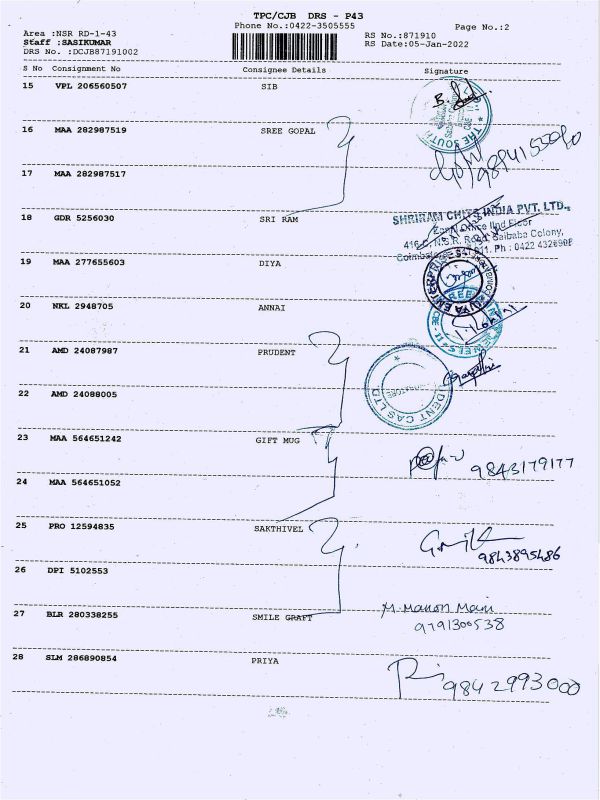 TPC/CJB DRS - P43
Phone No.:0422-3505555
Page No.:2
Area :NSR RD-1-43
RS No.:871910
Staff :SASIKUMAR
RS Date:05-Jan-2022
DRS No. :DCJB87191002
S No Consignment No Consignee Details Signature
15 VPL 206560507 SIB
B.
THE SOUTH
16 MAA 282987519 SREE GOPAL
9894155090
17 MAA 282987517
18 GDR 5256030 SRI RAM
SHRIRAM CHITS INDIA PVT. LTD.,
Zonal Office IInd Floor
416-C, N.S.R. Road, Saibaba Colony,
Coimbatore - 11. Ph : 0422 432690
19 MAA 277655603 DIYA
DIYA ENTERPRISES
20 NKL 2948705 ANNAI
21 AMD 24087987 PRUDENT
22 AMD 24088005
23 MAA 564651242 GIFT MUG
9843179177
24 MAA 564651052
25 PRO 12594835 SAKTHIVEL
9843895486
26 DPI 5102553
27 BLR 280338255 SMILE GRAFT
M. Manon Mani
9791300538
28 SLM 286890854 PRIYA
9842993000